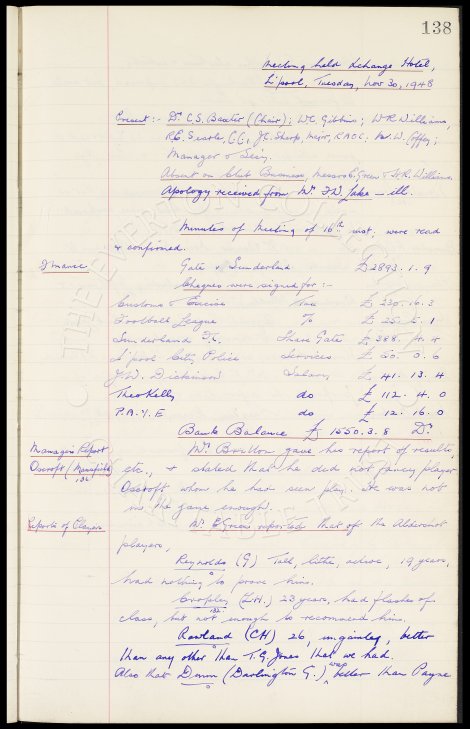 138
Meeting held Xchange Hotel,
L'pool, Tuesday, Nov 30, 1948
Present :- Dr C.S. Baxter (Chair); W.C. Gibbins; W.R. Williams,
R.E. Searle, J.C. Sharp, Major, R.A.O.C.; W.
Manager & Secy.
Absent on Club Business, Messrs E. Green & R. Williams.
Apology received from Mr. — ill.
Minutes of Meeting of 16th inst. were read
& confirmed.
Finance
Gate v. Sunderland £2893. 1. 9
Cheques were signed for :-
Customs & Excise Tax £ 230. 16. 3
Football League % £
Sunderland F.C. Share Gate £ 388.
L'pool City Police Services £ 0. 6
Dickinson Salary £ 41. 13. 4
Theo Kelly do £ 112. 4. 0
P.A.Y.E do £ 12. 16. 0
Bank Balance £ 1550. 3. 8 Dr.
Manager's Report
Oscroft (Mansfield)
Mr. Britton gave his report of results,
etc., & stated that he did not fancy player
Oscroft whom he had seen play. He was not
in the game enough.
Reports of Players
Mr. E Green reported that of the Aldershot
players,
Reynolds (G) Tall, lithe, active, 19 years,
had nothing to prove him.
Cropley (L.H.) 23 years, had flashes of
class, but not enough to recommend him.
132
Rowland (CH) 26, ungainly, better
than any other than T.G. Jones that we had.
Also that Dunn (Darlington G.) was better than Payne